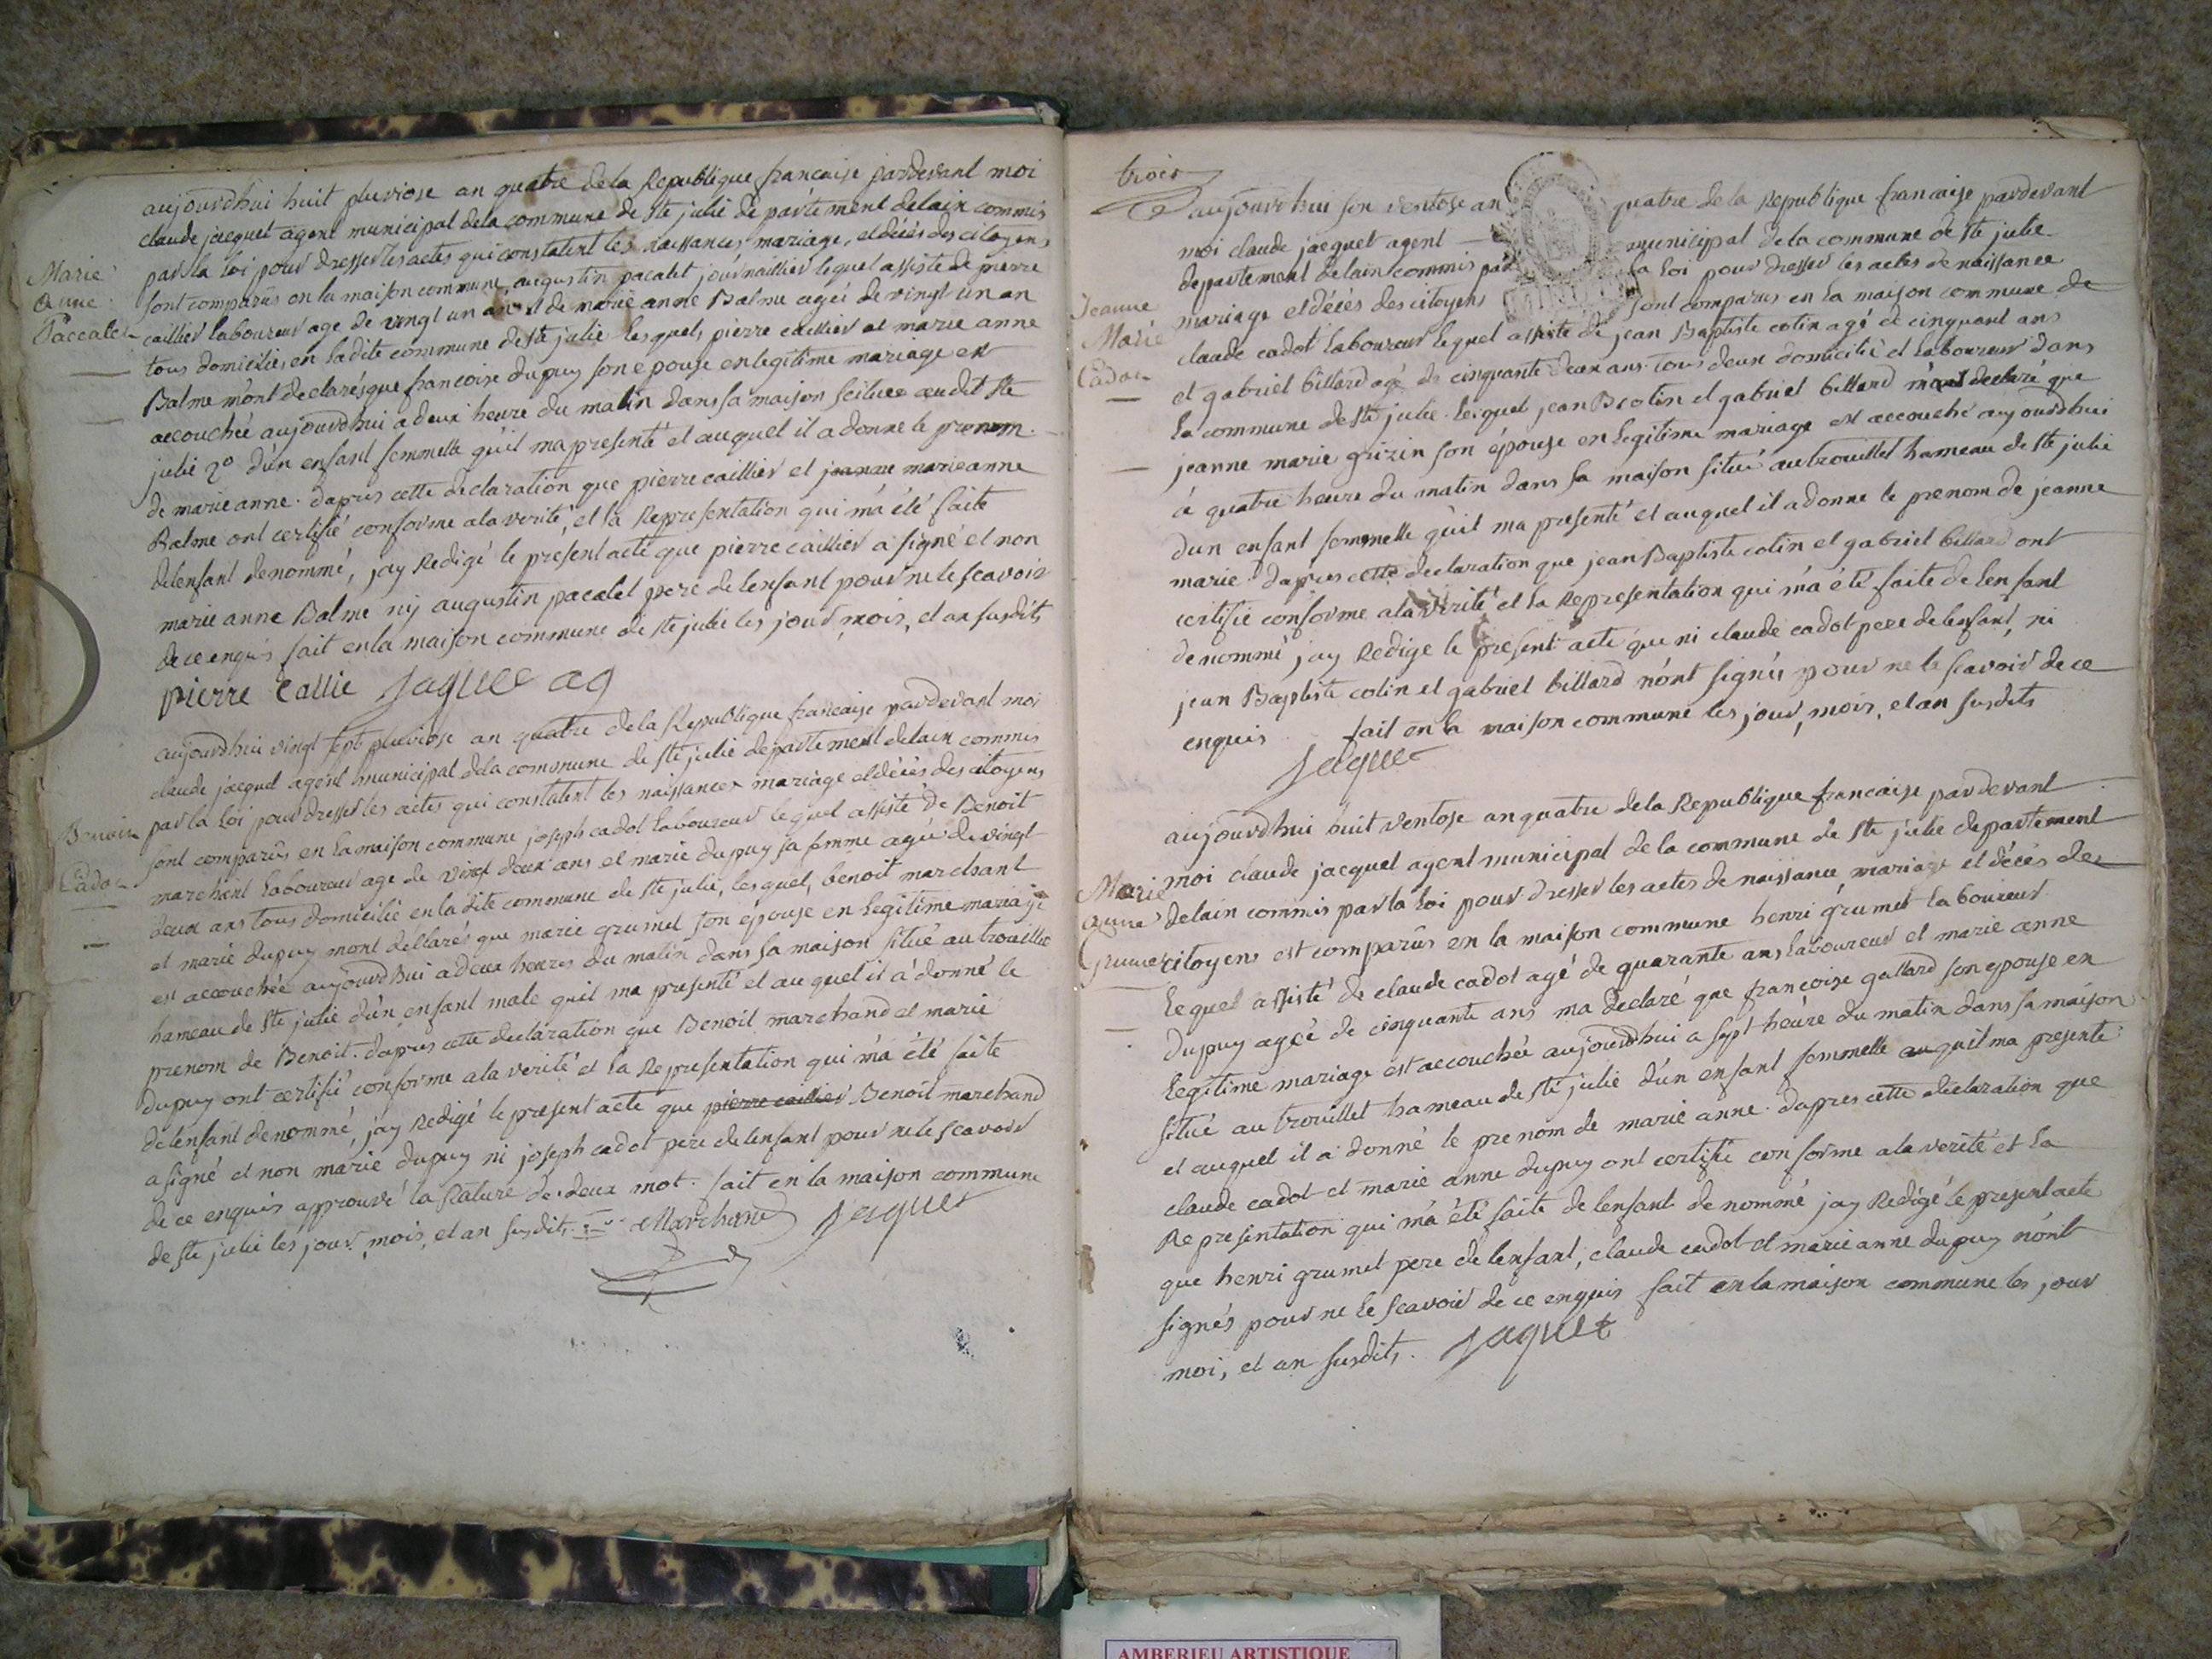 aujourdhui huit pluviose an quatre de la Republique francaise pardevant moi
claude jacquet agent municipal dela commune de Ste julie departement delain commis
par la loi pour dresser les actes qui constatent les naissances mariage, et décès des citoyens
Marie
anne
Paccalet
sont comparûs en la maison commune augustin pacalet journaillier lequel assisté de pierre
caillier laboureur age de vingt un an et de marie anne Balme agée de vingt un an
tous domiciliés en ladite commune de Ste julie lesquels pierre caillier et marie anne
Balme m'ont declarés que francoise dupuy son epouse en legitime mariage est
accouchée aujourdhui a deux heure du matin dans sa maison scituée audit Ste
julie d'un enfant femmelle qu'il ma presenté et auquel il a donne le prenom
de marie anne. dapres cette declaration que pierre caillier et jeanne marie anne
Balme ont certifié conforme ala verité, et la Representation qui m'a été faite
delenfant denommé, jay Redigé le présent acte que pierre caillier a signé et non
marie anne Balme nij augustin pacalet pere de lenfant pour ne le scavoir
de ce enquis fait en la maison commune de Ste julie les jour mois, et an susdits
pierre Callie Jaquet ag
aujourdhui vingt sept pluviose an quatre dela Republique francaise pardevant moi
claude jacquet agent municipal dela commune de Ste julie departement delain commis
par la loi pour dresser les actes qui constatent les naissances mariage et décès des citoyens
Benoit
Cadot
sont comparûs en la maison commune joseph cadot laboureur lequel assisté de Benoit
marchant laboureur age de vingt deux ans et marie dupuy sa femme agée de vingt
deux ans tous domicilié en la dite commune de Ste julie, lesquel, benoit marchant
et marie dupuy mont déclarés que marie grumet son épouse en legitime mariage
est accouchée aujourdhui a deux heures du matin dans sa maison situé au trouillet
hameau de Ste julie d'un enfant male quil ma presenté et au quel il à donné le
prenom de Benoit. dapres cette declaration que Benoit marchand et marie
dupuy ont certifié conforme ala verité et la Representation qui m'a été faite
delenfant denommé, jay Redigé le present acte que pierre caillier Benoit marchand
a signé et non marie dupuy ni joseph cadot pere de lenfant pour ne le scavoir
de ce enquis approuvé la Rature de deux mot. fait en la maison commune
de Ste julie les jour mois, et an susdits Marchand Jaquet
trois
aujourdhui sin ventose an quatre de la Republique francaise pardevant
moi claude jacquet agent municipal de la commune de Ste julie
departement delain commis par la loi pour dresser les actes de naissance
Jeanne
Marie
Cadot
mariage et décès des citoyens sont comparus en la maison commune de
claude cadot laboureur lequel assisté de jean Baptiste cotin agé de cinquant ans
et gabriel billard agé de cinquante deux ans tous deux domicilié et laboureur dans
la commune de Ste julie. lesquel jean B cotin et gabriel billard m'ont declaré que
jeanne marie grizin son épouse en legitime mariage est accouché aujourdhui
à quatre heure du matin dans sa maison situé au trouillet hameau de Ste julie
dun enfant femmelle qu'il ma presenté et auquel il a donne le prenom de jeanne
marie. dapres cette declaration que jean Baptiste cotin et gabriel billard ont
certifié conforme ala verité et la Representation qui m'a été faite de lenfant
denommé jay Redige le present acte que ni claude cadot pere de lenfant, ni
jean Baptiste cotin et gabriel billard n'ont signés pour ne le scavoir de ce
enquis fait en la maison commune les jour, mois, et an susdits
Jaquet
aujourdhui huit ventose an quatre dela Republique francaise pardevant
moi claude jacquet agent municipal de la commune de Ste julie departement
Marie
anne
Grumet
delain commis par la loi pour dresser les actes de naissance mariage et décès des
citoyens est comparûs en la maison commune henri grumet laboureur
lequel assisté de claude cadot agé de quarante ans laboureur et marie anne
dupuy agée de cinquante ans ma declaré que françoise gallard son epouse en
legitime mariage est accouchée aujourdhui a sept heure du matin dans sa maison
situé au trouillet hameau de Ste julie d'un enfant femmelle quil ma presenté
et auquel il a donné le prenom de marie anne. dapres cette declaration que
claude cadot et marie anne dupuy ont certifié conforme ala verité et la
Representation qui m'a été faite de lenfant denommé jay Redigé le present acte
que henri grumet pere de lenfant, claude cadot et marie anne dupuy n'ont
signés pour ne le scavoir de ce enquis fait en la maison commune les jour
moi, et an susdits. Jaquet
AMBERIEU ARTISTIQUE